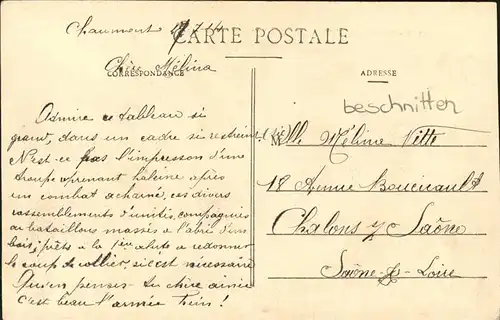 Chaumont 17/7/14
CARTE POSTALE
Chère Mélina
CORRESPONDANCE
ADRESSE
beschnitten
Admire ce tableau si
grand, dans un cadre si restreint
N'est-ce pas l'impression d'une
troupe aprenant haleine après
un combat acharné, ces divers
rassemblements d'unités, compagnies
ou bataillons massés à l'abri d'un
bois; prêts à la 1ère alerte a redonner
le coup de collier, si c'est nécessaire
Qu'en penses- tu chère aimée
c'est beau l'armée
Mlle Méline Vitte
18 Avenue Boucicault
Chalons s/ Saône
Saône-&-Loire